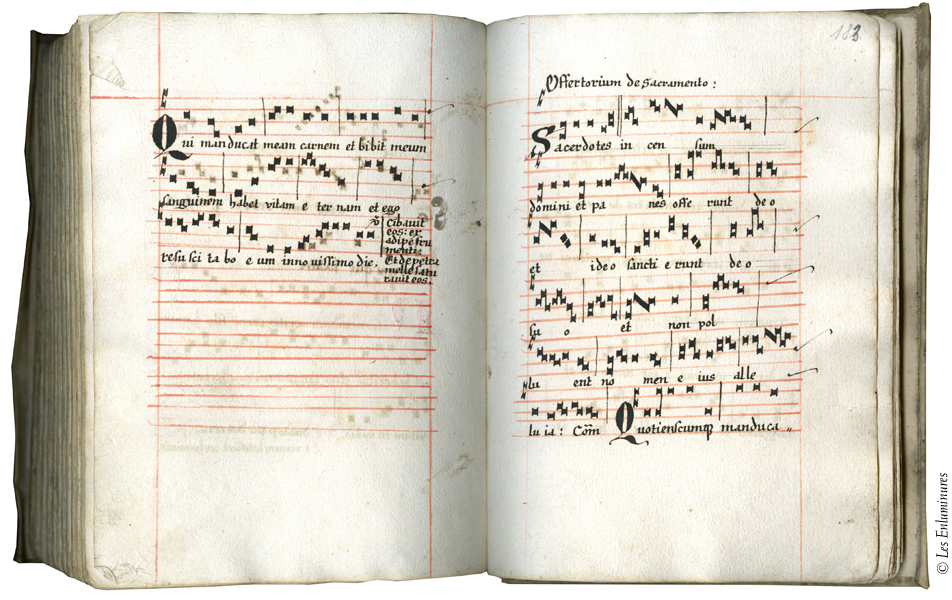 Qui manducat meam carnem et bibit meum
sanguinem habet vitam e ter nam et ego
resu sci ta bo e um inno uissimo die.
Cibauit
eos: ex
adipe fru
menti:
Et de petra
melle satu
rauit eos.
183
Offertorium de Sacramento:
Sacerdotes in cen sum
domini et pa nes offe runt de o
et ideo sancti e runt de o
suo et non pol
lu ent no men e ius alle
lu ia: Com̄ Quotienscumqꝫ manduca
© Les Enluminures